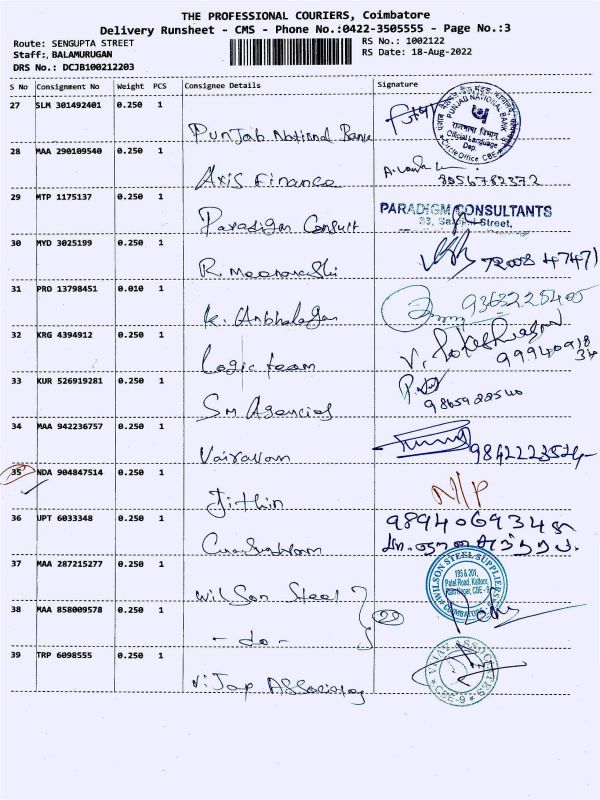 THE PROFESSIONAL COURIERS, Coimbatore
Delivery Runsheet - CMS - Phone No.:0422-3505555 - Page No.:3
Route: SENGUPTA STREET RS No.: 1002122
Staff: BALAMURUGAN RS Date: 18-Aug-2022
DRS No.: DCJB100212203
S No Consignment No Weight PCS Consignee Details Signature
27 SLM 301492401 0.250 1
Punjab National Bank
PUNJAB NATIONAL BANK
Official Language
Dep.
Circle Office CBE
28 MAA 290109540 0.250 1
Axis Finance 8056782372
29 MTP 1175137 0.250 1
PARADIGM CONSULTANTS
Paradigm Consult 33, Street,
30 MYD 3025199 0.250 1
R. Meenakshi 72008 47471
31 PRO 13798451 0.010 1
K. Anbhalagan 9363225405
32 KRG 4394912 0.250 1
Logic team
33 KUR 526919281 0.250 1
SM Agencies 9865922540
34 MAA 942236757 0.250 1
Vairavan
35 NDA 904847514 0.250 1
Jithin N/P
36 UPT 6033348 0.250 1
37 MAA 287215277 0.250 1
Wilson Steel
WILSON STEEL SUPPLIERS
195 & 201,
Patel Road, Kattoor,
Ram Nagar, CBE - 9
COIMBATORE
38 MAA 858009578 0.250 1
- do -
39 TRP 6098555 0.250 1
Vijay Associates
VIJAY ASSOCIATES
CBE-9